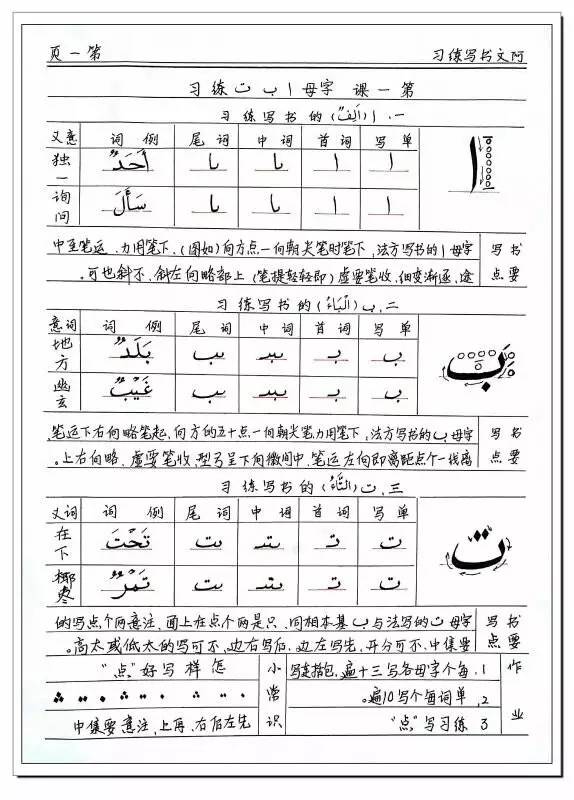 阿文书写练习 第一页
第一课 字母 ا ب ت 练习
一、ا (اَلِفٌ) 的书写练习
单写 词首 词中 词尾 例词 意义
ا ا ـا ـا أَحَدٌ 独一
ا ا ـا ـا سَأَلَ 询问
书写要点
字母ا的书写方法,下笔时笔尖朝向一点方向(如图),下笔用力、运笔至中
途,逐渐变细,收笔要虚(即轻轻提笔)上部略向左斜,不斜也可。
二、ب (اَلْبَاءُ) 的书写练习
单写 词首 词中 词尾 例词 词意
ب بـ ـبـ ـب بَلَدٌ 地方
ب بـ ـبـ ـب غَيْبٌ 幽玄
بَ
书写要点
字母ب的书写方法,下笔用力,笔尖朝向一点十五的方向,起笔略向右下运笔
离线一个点距离即向左运笔,中间微向下呈弓型,收笔要虚,略向右上。
三、ت (اَلتَّاءُ) 的书写练习
单写 词首 词中 词尾 例词 词义
ت تـ ـتـ ـت تَحْتَ 在下
ت تـ ـتـ ـت تَمْرٌ 椰枣
ت
书写要点
字母ت的写法与ب基本相同,只是两个点在上面,注意两个点写的
要集中,不可分开,先写左边,后写右边,不可写的太低或太高。
作业
1、每个字母各写三十遍,包括连写
2、单词每个写10遍。
3 练习写“点”
小常识
怎样写好“点”
先左后右,再上,注意要集中